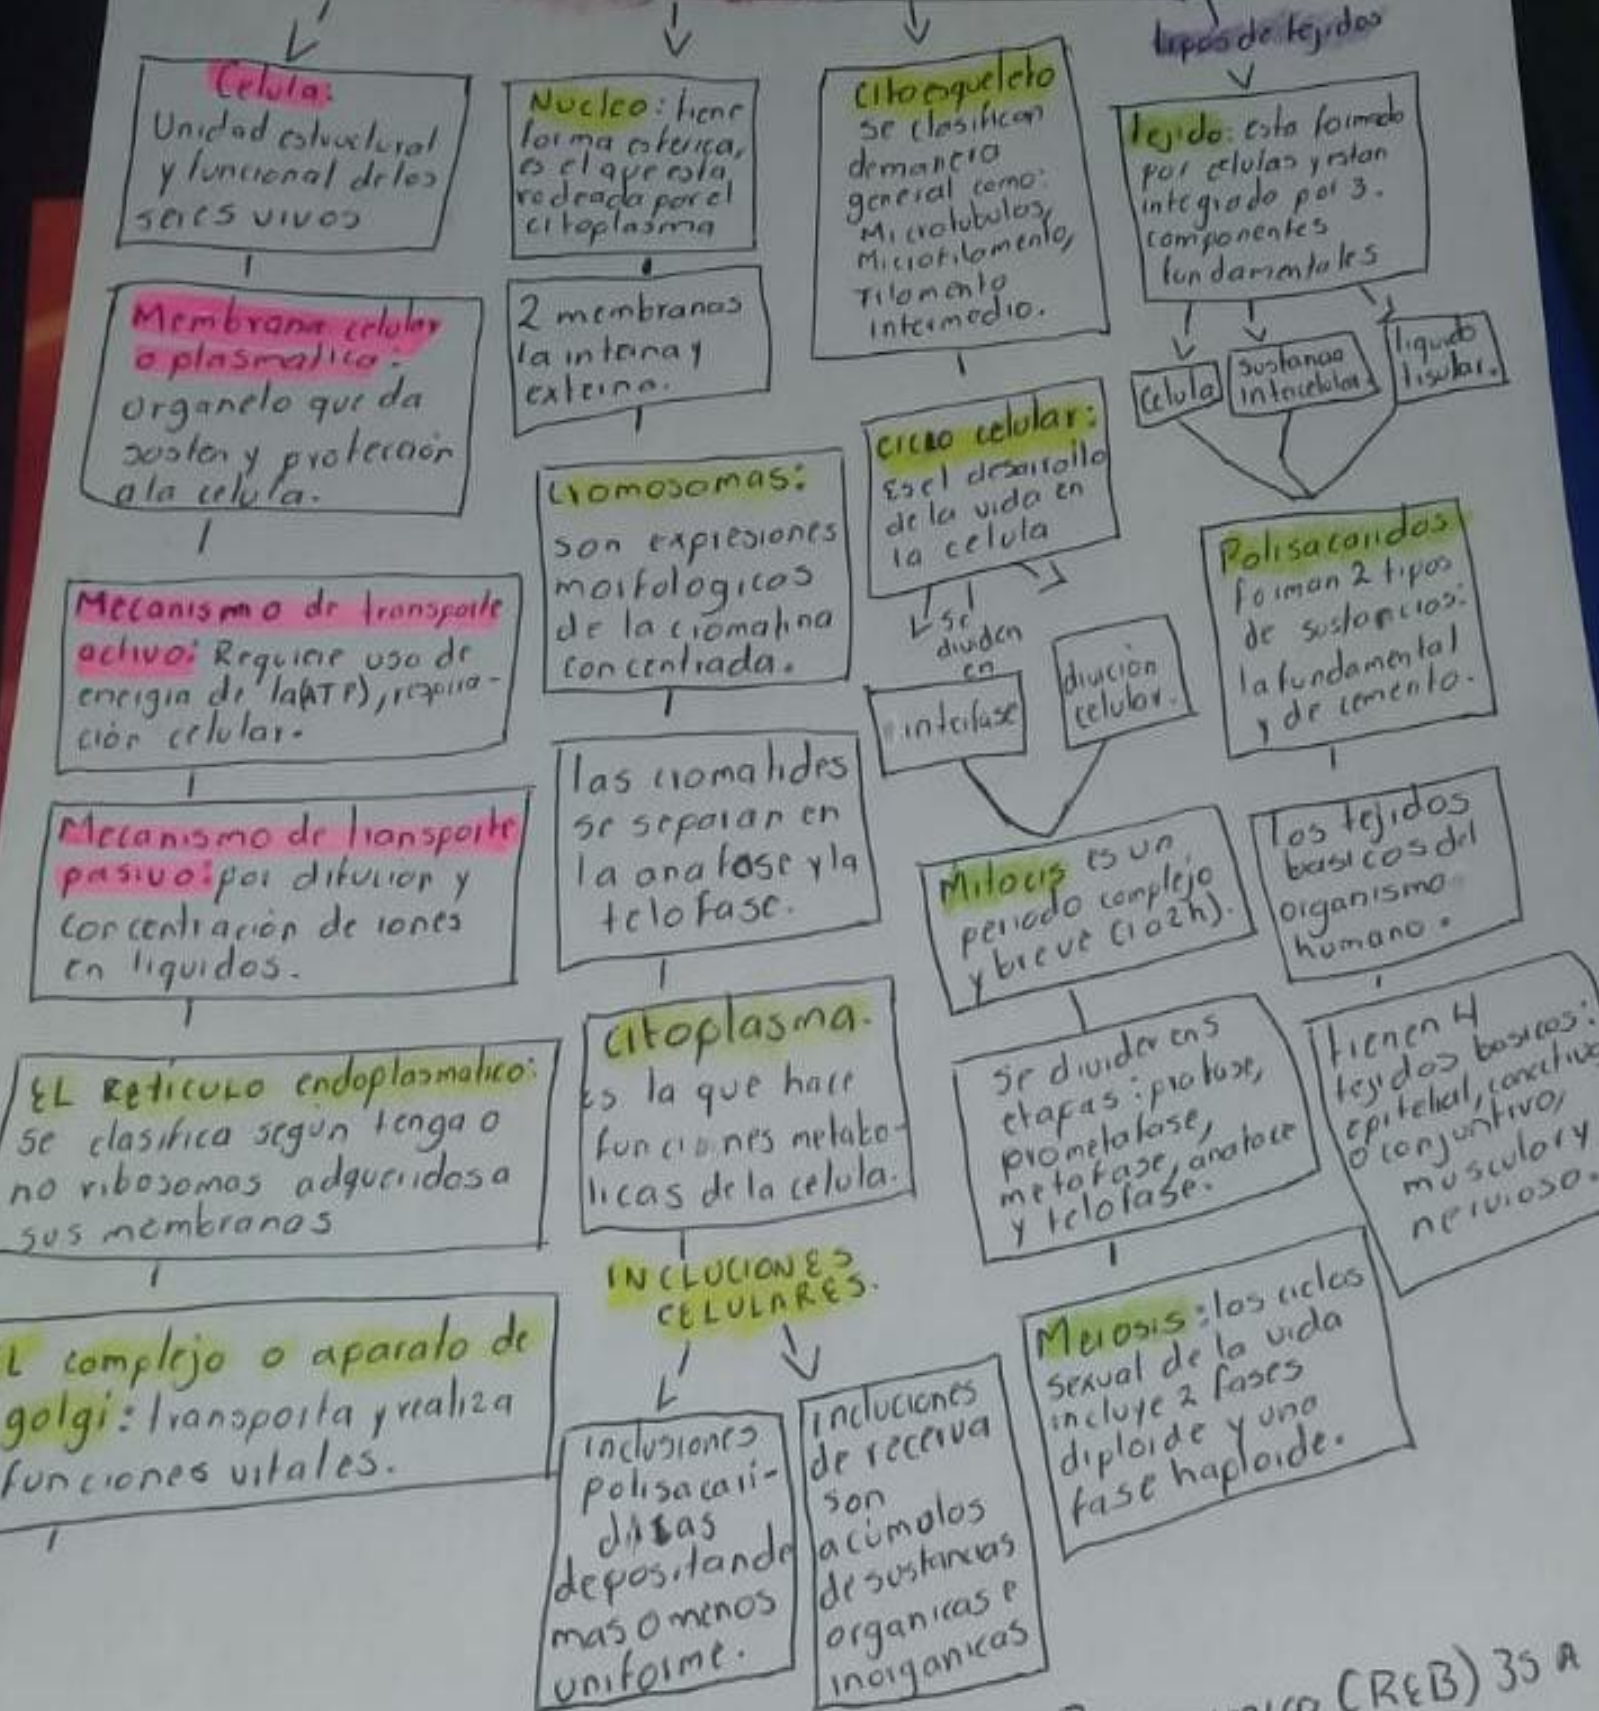 Celula:
Unidad estructural
y funcional de los
seres vivos
Membrana celular
o plasmatica:
organelo que da
sosten y protección
a la celula.
Mecanismo de transporte
activo: Requiere uso de
energia de la(ATP), respira-
ción celular.
Mecanismo de transporte
pasivo: por difucion y
concentración de iones
en liquidos.
EL Retículo endoplasmatico:
se clasifica según tenga o
no ribosomas adqueridos a
sus membranas
L complejo o aparato de
golgi: transporta y realiza
funciones vitales.
Nucleo: tiene
forma esferica,
es el que esta
rodeada por el
citoplasma
2 membranas
la interna y
externa.
Cromosomas:
son expresiones
morfologicas
de la cromatina
concentrada.
las cromatides
se separan en
la anafase y la
telofase.
Citoplasma.
Es la que hace
funciones metabo-
licas de la celula.
INCLUCIONES
CELULARES.
inclusiones
polisacari-
dicas
depositande
mas o menos
uniforme.
incluciones
de recerva
son
acúmolos
de sustancias
organicas e
inorganicas
Citoesqueleto
se clasifican
de manera
general como:
Microtubulos,
Microfilamento,
Filamento
intermedio.
Ciclo celular:
Es el desarrollo
de la vida en
la celula
se
dividen
en
interfase
divición
celular.
Mitocis es un
periodo complejo
y breve (1 a 2h).
Se dividen en 5
etapas: profase,
prometafase,
metafase, anafase
y telofase.
Meiosis: los ciclos
sexual de la vida
incluye 2 fases
diploide y una
fase haploide.
tipos de tejidos
Tejido: esta formado
por celulas y estan
integrado por 3.
componentes
fundamentales
celula
sustancia
intercelular.
liquido
tisular.
Polisacaridos
forman 2 tipos
de sustancias:
la fundamental
y de cemento.
Los tejidos
basicos del
organismo
humano.
tienen 4
tejidos basicos:
epitelial, conectivo
o conjuntivo,
muscular y
nervioso.
(R&B) 35 A